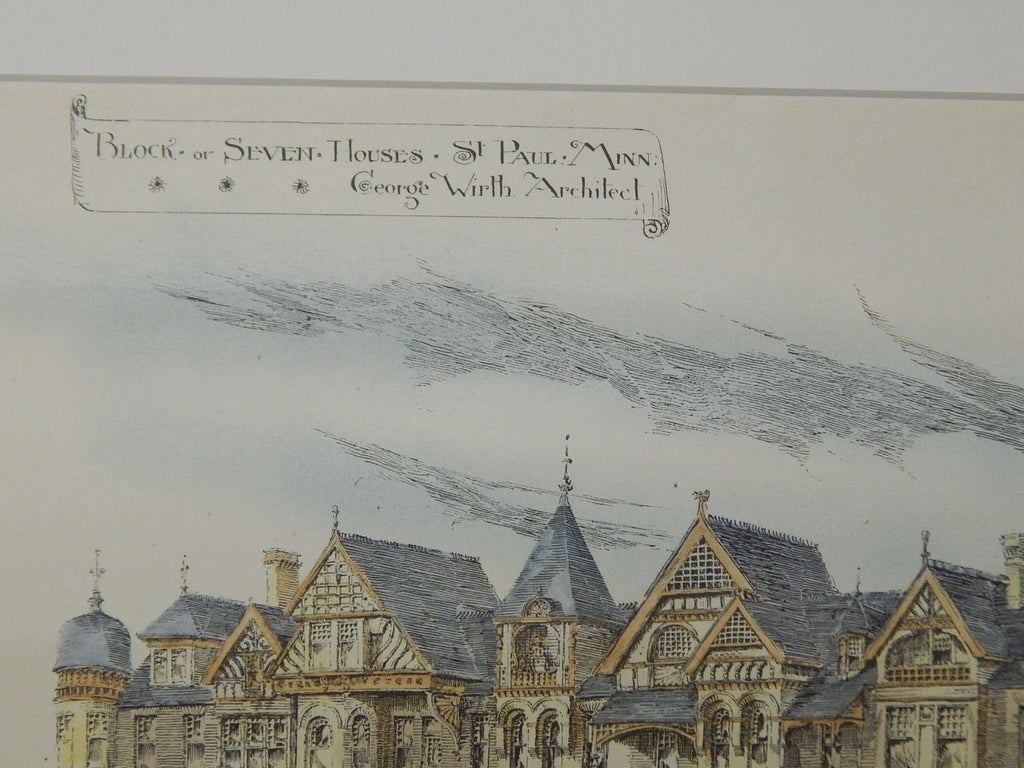 BLOCK · OF SEVEN · HOUSES · St PAUL · MINN:
George Wirth. Architect